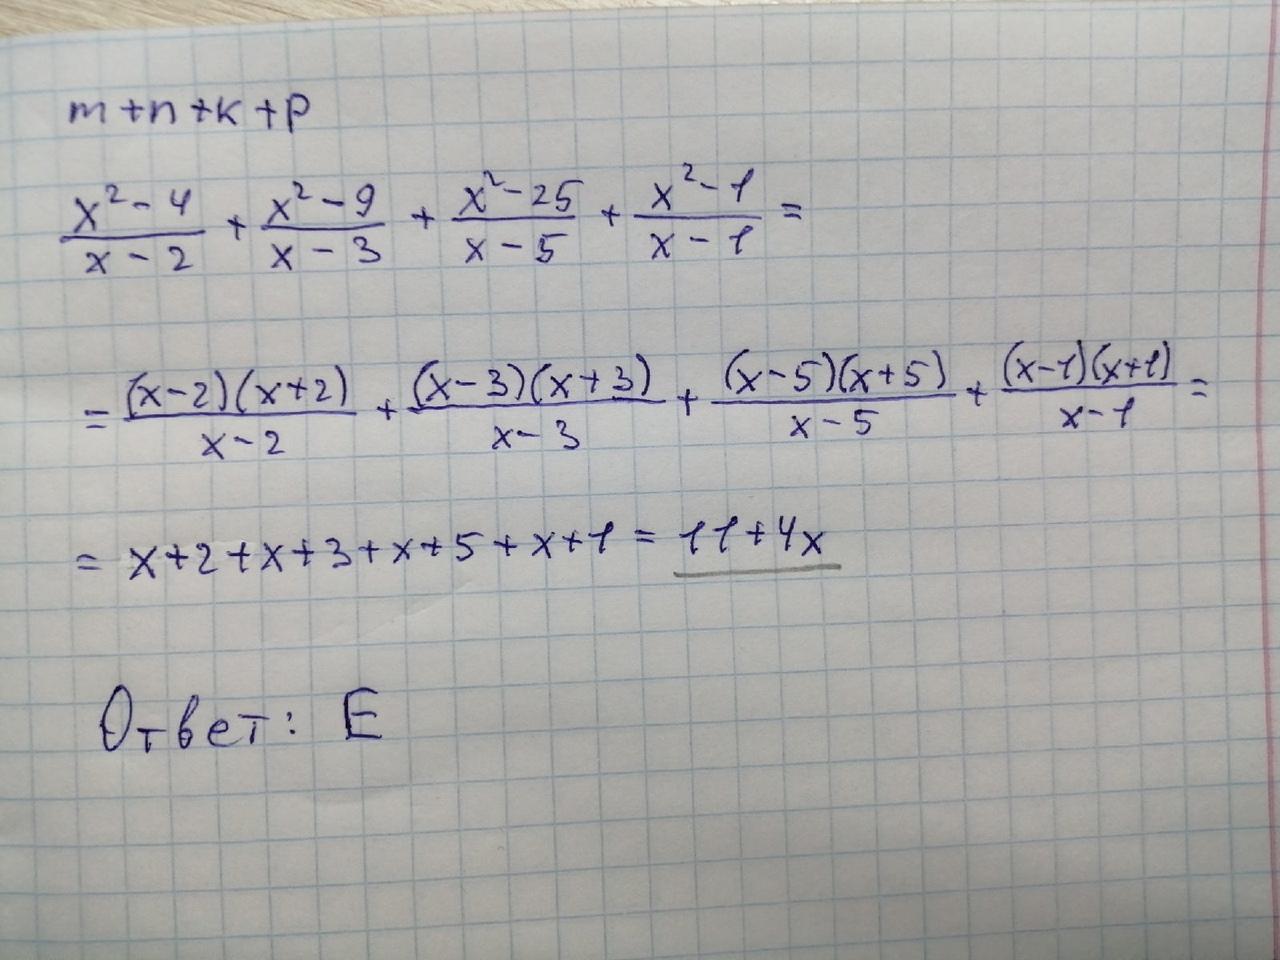 m+n+k+p
x²-4/x-2 + x²-9/x-3 + x²-25/x-5 + x²-1/x-1 =
= (x-2)(x+2)/x-2 + (x-3)(x+3)/x-3 + (x-5)(x+5)/x-5 + (x-1)(x+1)/x-1 =
= x+2+x+3+x+5+x+1 = 11+4x
Ответ: E